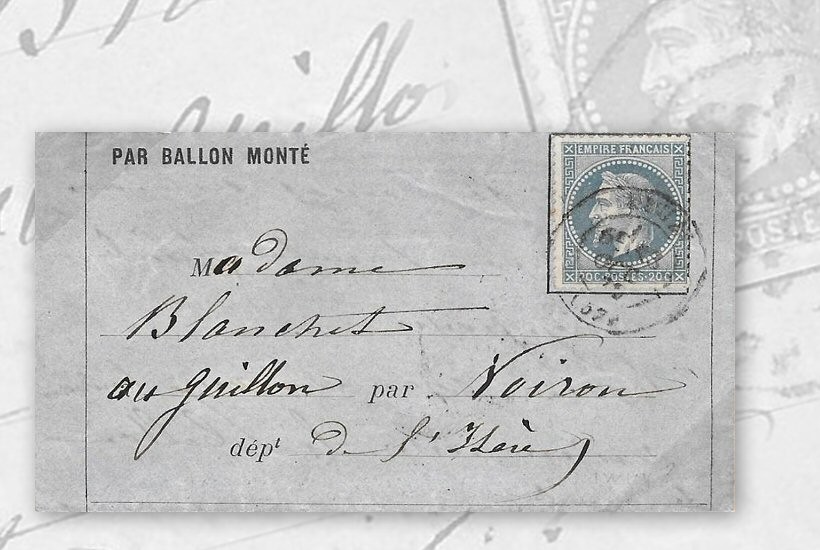 PAR BALLON MONTÉ
EMPIRE FRANCAIS
20C·POSTES·20C
Madame
Blanchet
au Guillon par Voiron
dépt de l'Isère